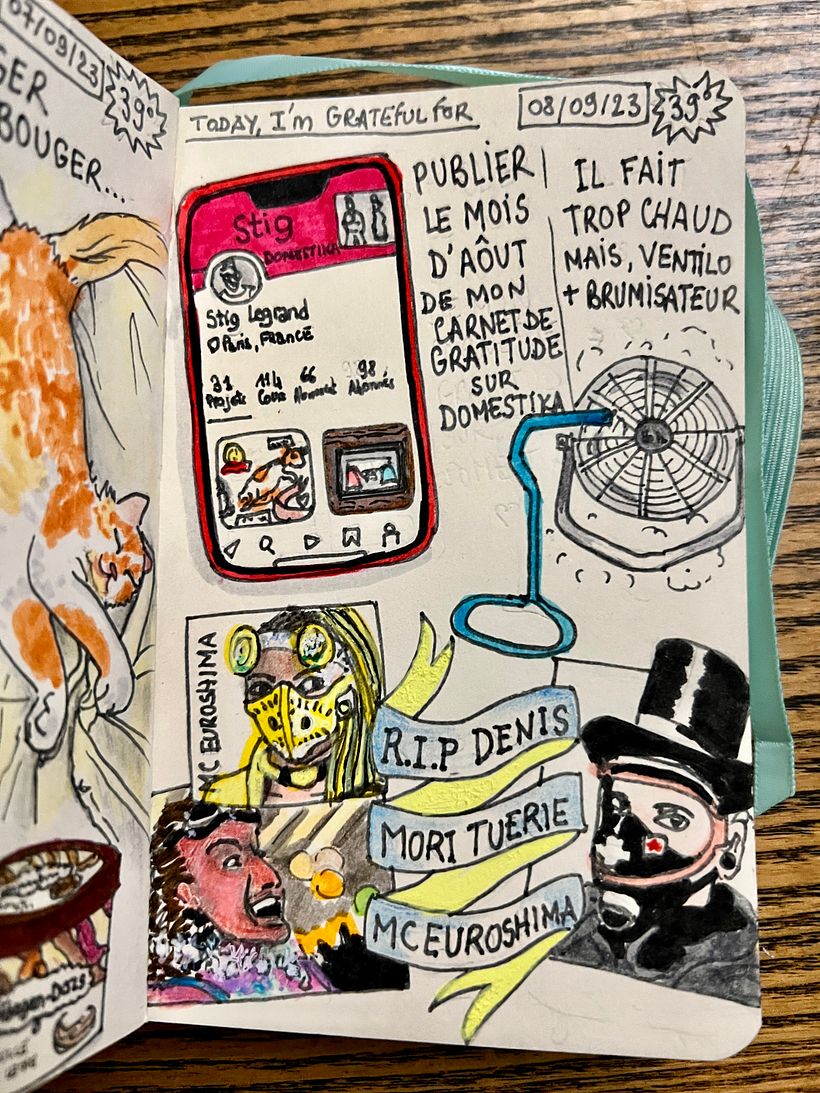 07/09/23
39°
BOUGER...
TODAY, I'm GRATEFUL for
08/09/23
39°
Stig
DOMESTIKA
Stig Legrand
Paris, FRANCE
31 114 66 98
Projets Cours Abonnés
PUBLIER
LE MOIS
D'AÔUT
DE MON
CARNET DE
GRATITUDE
SUR
DOMESTIKA
IL FAIT
TROP CHAUD
MAIS, VENTILO
+ BRUMISATEUR
MC EUROSHIMA
R.I.P DENIS
MORI TUERIE
MC EUROSHIMA
Häagen-Dazs